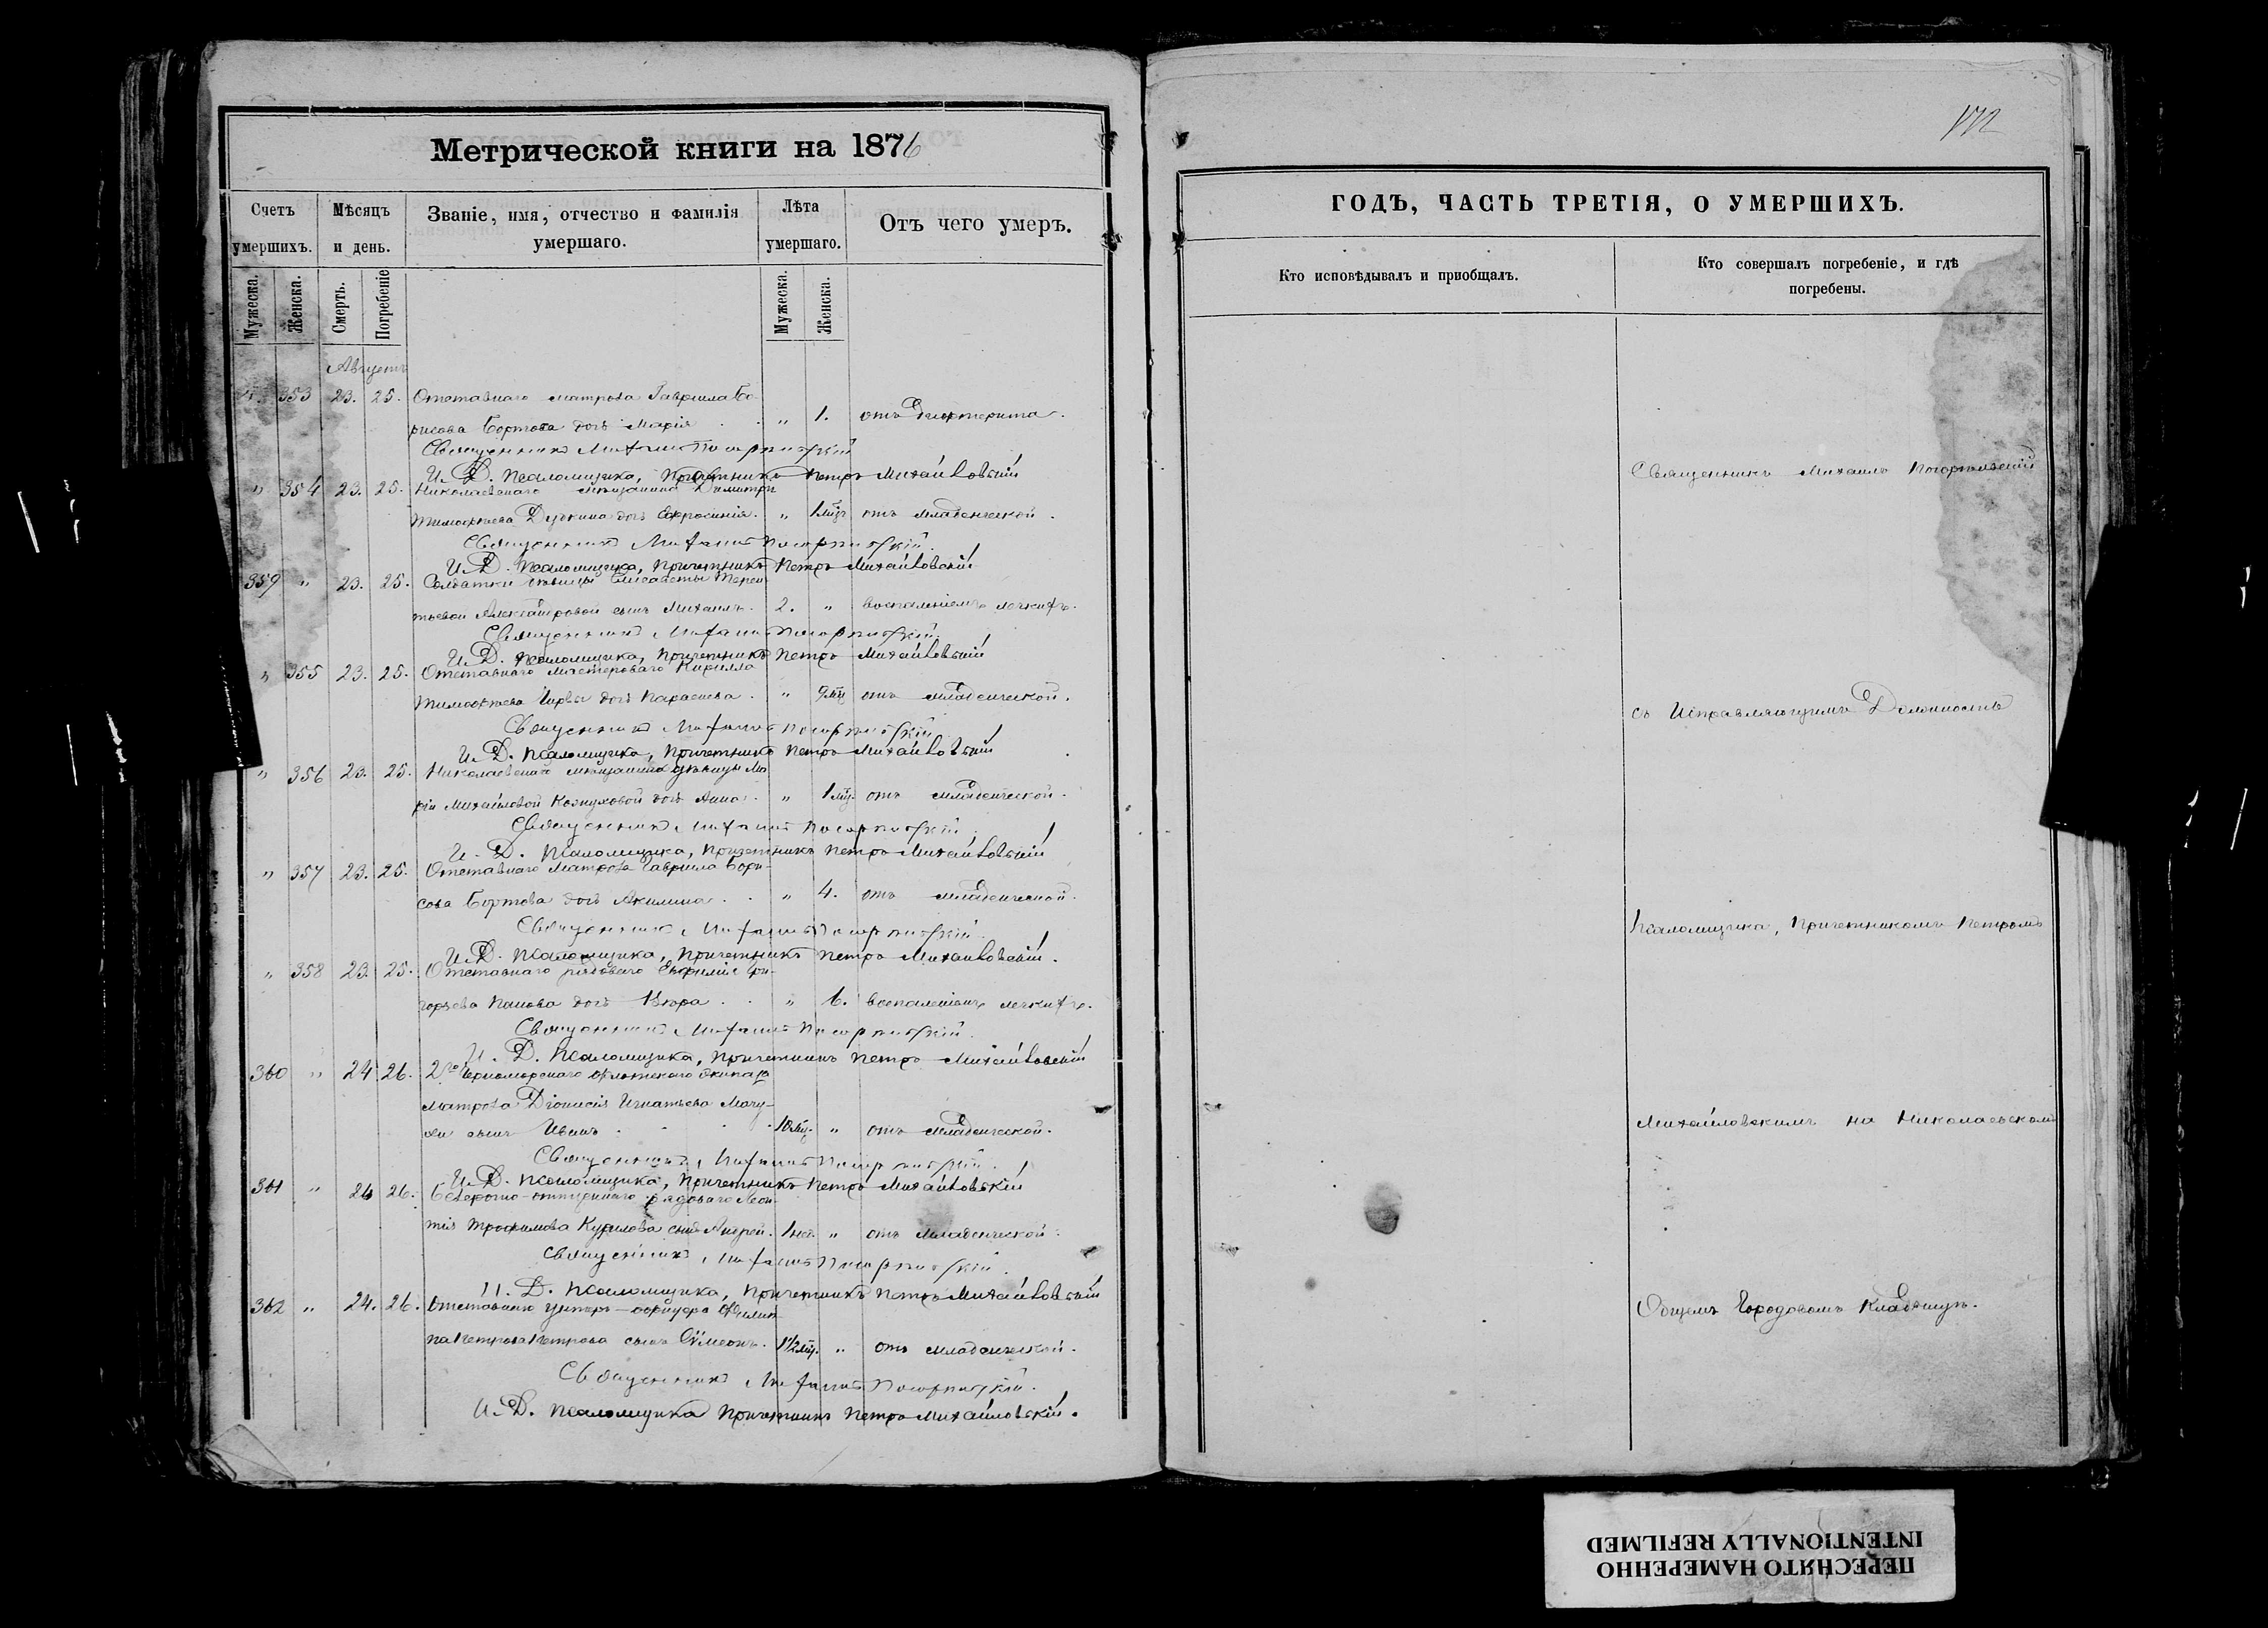 Метрической книги на 1876
Счетъ умершихъ.
Мѣсяцъ и день.
Званіе, имя, отчество и фамилія умершаго.
Лѣта умершаго.
Отъ чего умеръ.
Мужеска.
Женска.
Смерть.
Погребеніе
Мужеска.
Женска.
Августъ
353 23. 25. Отставнаго матроса Гавриила Бо-
рисова Бортова дочь Марія " 1. отъ дифтерита.
Священникъ Михаилъ
И. Д. Псаломщика, Причетникъ Петръ Михайловскій
" 354 23. 25. Николаевскаго мѣщанина Димитрія
Тимофѣева дочь Евфросинія. " 1 мѣс. отъ младенческой.
Священникъ Михаилъ
И. Д. Псаломщика, Причетникъ Петръ Михайловскій
359 " 23. 25. Солдатки вдовицы Елисаветы Терен-
тьевой Александровой сынъ Михаилъ. 2. " воспаленіемъ легкихъ.
Священникъ Михаилъ
И. Д. Псаломщика, Причетникъ Петръ Михайловскій
" 355 23. 25. Отставнаго мастероваго Кирилла
Тимофѣева дочь Параскева. " 9 мѣс. отъ младенческой.
Священникъ Михаилъ
И. Д. Псаломщика, Причетникъ Петръ Михайловскій
" 356 23. 25. Николаевской мѣщанки дѣвицы Ма-
ріи Михайловой Кожуховой дочь Анна. " 1 мѣс. отъ младенческой.
Священникъ Михаилъ
И. Д. Псаломщика, Причетникъ Петръ Михайловскій
" 357 23. 25. Отставнаго матроса Гавриила Бори-
сова Бортова дочь Акилина. " 4. отъ младенческой.
Священникъ Михаилъ
И. Д. Псаломщика, Причетникъ Петръ Михайловскій.
" 358 23. 25. Отставнаго рядоваго Гри-
горьева Панова дочь " 6. воспаленіемъ легкихъ.
Священникъ Михаилъ
И. Д. Псаломщика, Причетникъ Петръ Михайловскій
360 " 24 26. 2го Черноморскаго флотскаго экипажа
матроса Діонисія Игнатьева
сынъ Иванъ 10 мѣс. " отъ младенческой.
Священникъ Михаилъ
И. Д. Псаломщика, Причетникъ Петръ Михайловскій
361 " 24 26. Безсрочно-отпускнаго рядоваго Леон-
тія Трофимова Курилова сынъ Андрей. 1 нед. " отъ младенческой.
Священникъ Михаилъ
И. Д. Псаломщика, Причетникъ Петръ Михайловскій
362 " 24. 26. Отставнаго унтеръ-офицера Филип-
па Петрова Петрова сынъ Сѵмеонъ. 1½ мѣс. " отъ младенческой.
Священникъ Михаилъ
И. Д. Псаломщика Причетникъ Петръ Михайловскій.
172
ГОДЪ, ЧАСТЬ ТРЕТІЯ, О УМЕРШИХЪ.
Кто исповѣдывалъ и пріобщалъ.
Кто совершалъ погребеніе, и гдѣ погребены.
Священникъ Михаилъ
съ Исправляющимъ Должность
Псаломщика, Причетникомъ Петромъ
Михайловскимъ на Николаевскомъ
Общемъ Городовомъ Кладбищѣ.
ПЕРЕСНЯТО НАМЕРЕННО
INTENTIONALLY REFILMED